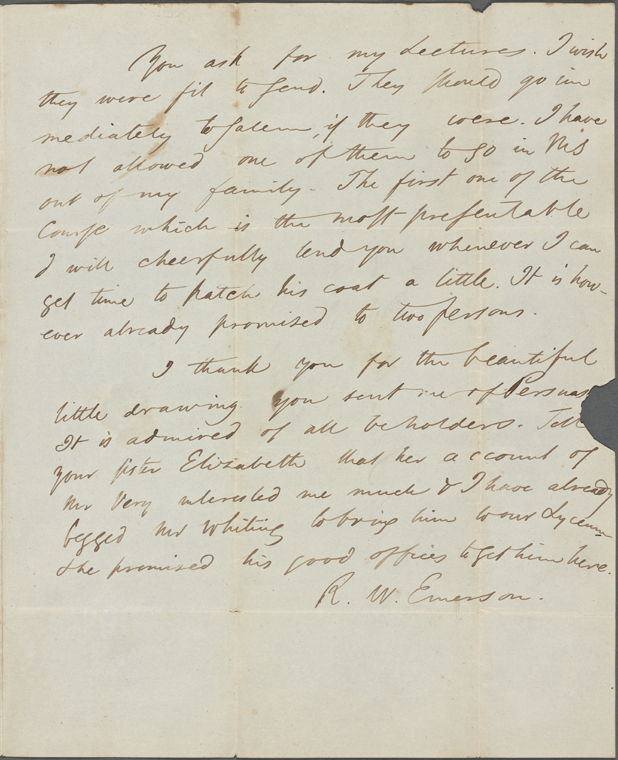 You ask for my Lectures. I wish
they were fit to send. They should go im
mediately to Salem, if they were. I have
not allowed one of them to go in MS
out of my family. The first one of the
Course which is the most presentable
I will cheerfully lend you whenever I can
get time to patch his coat a little. It is how-
ever already promised to two persons.
I thank you for the beautiful
little drawing you sent me of Persua
It is admired of all beholders. Tell
your sister Elizabeth that her account of
Mr Very interested me much & I have already
begged Mr Whiting to bring him to our Lyceum
& he promised his good offices to get him here.
R. W. Emerson.